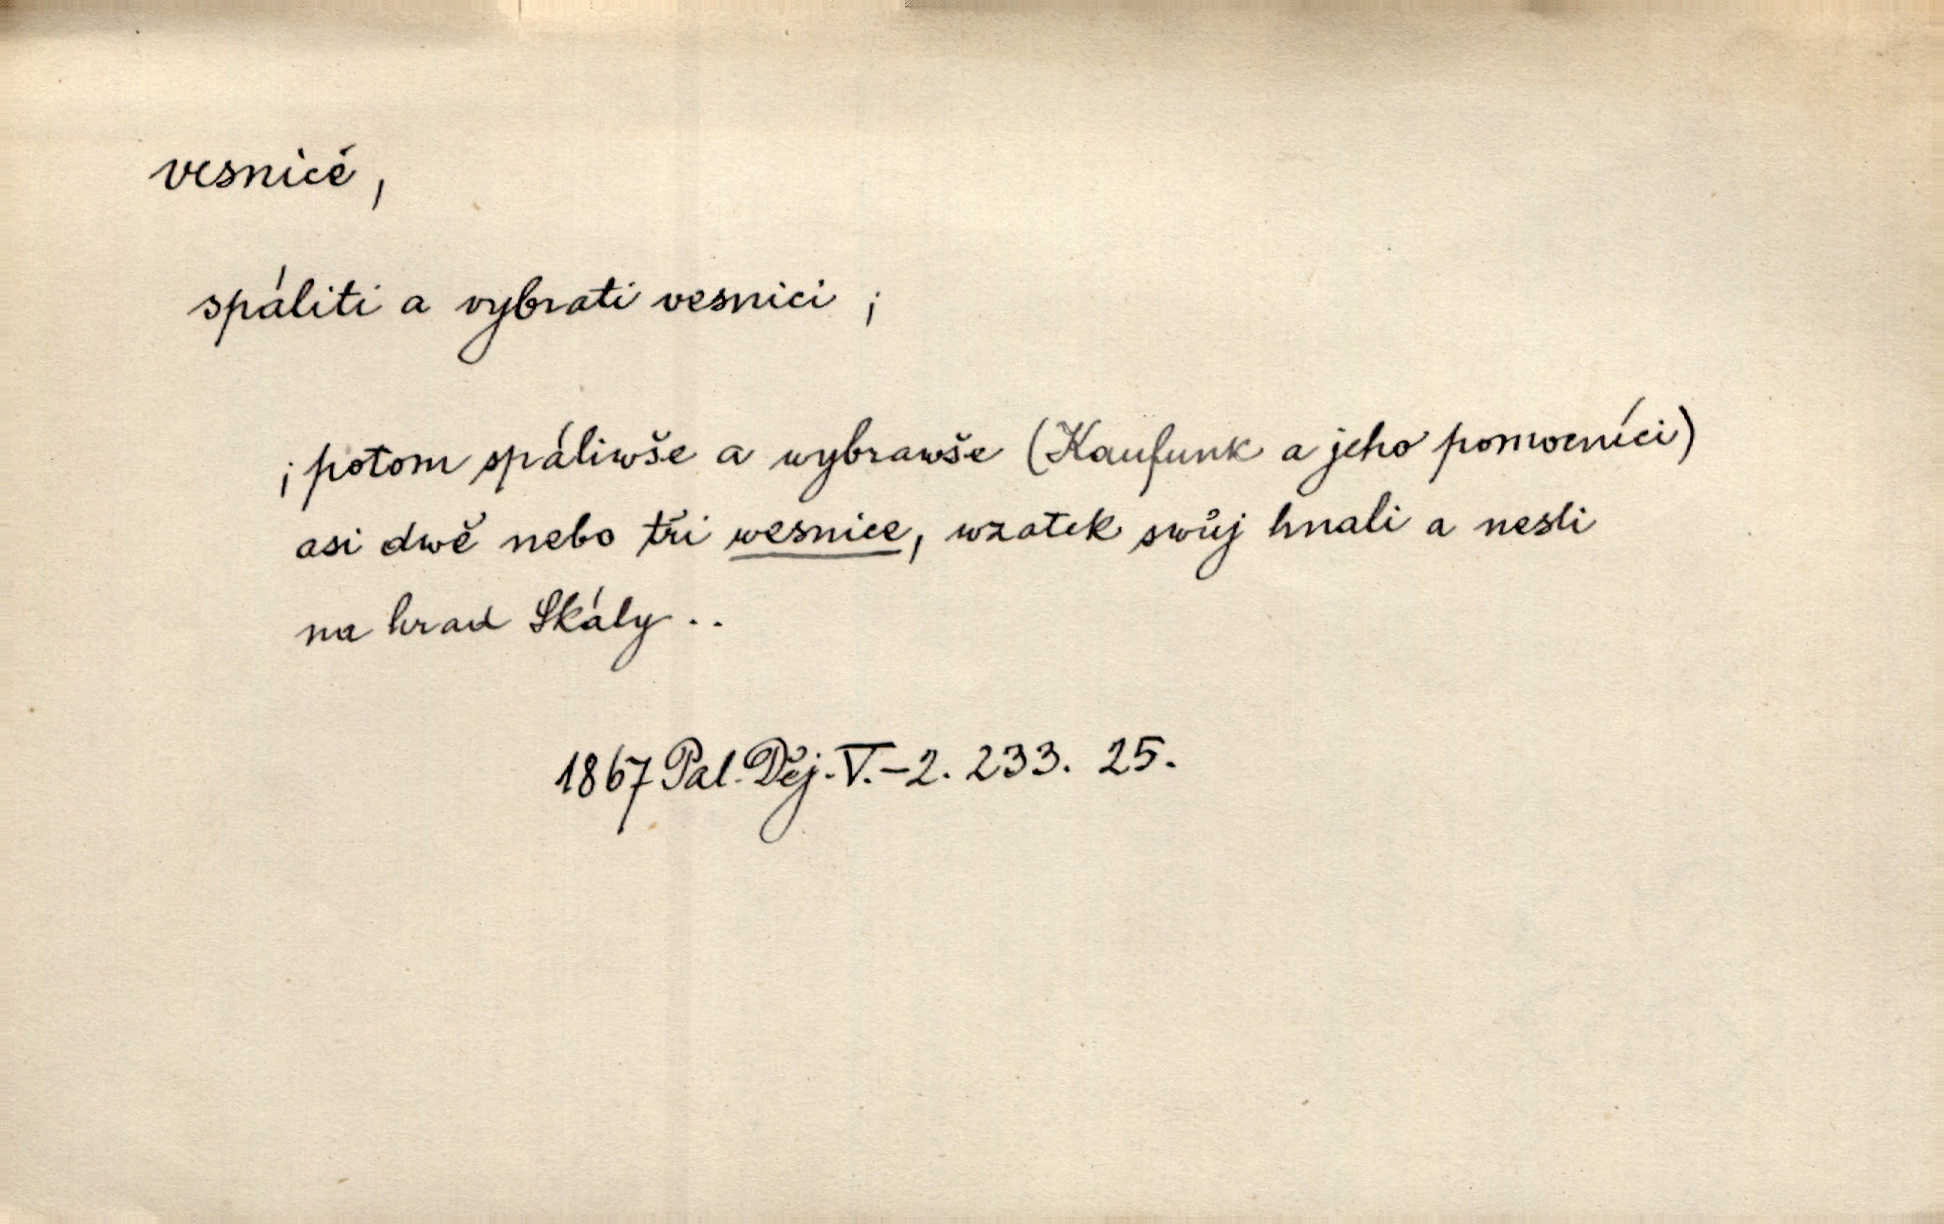 vesnicě,
spáliti a vybrati vesnici ;
; potom spáliwše a wybrawše (Kaufunk a jeho pomocníci)
asi dwě nebo tři wesnice, wzatek swůj hnali a nesli
na hrad Skály ..
1867 Pal. Děj. V.–2. 233. 25.